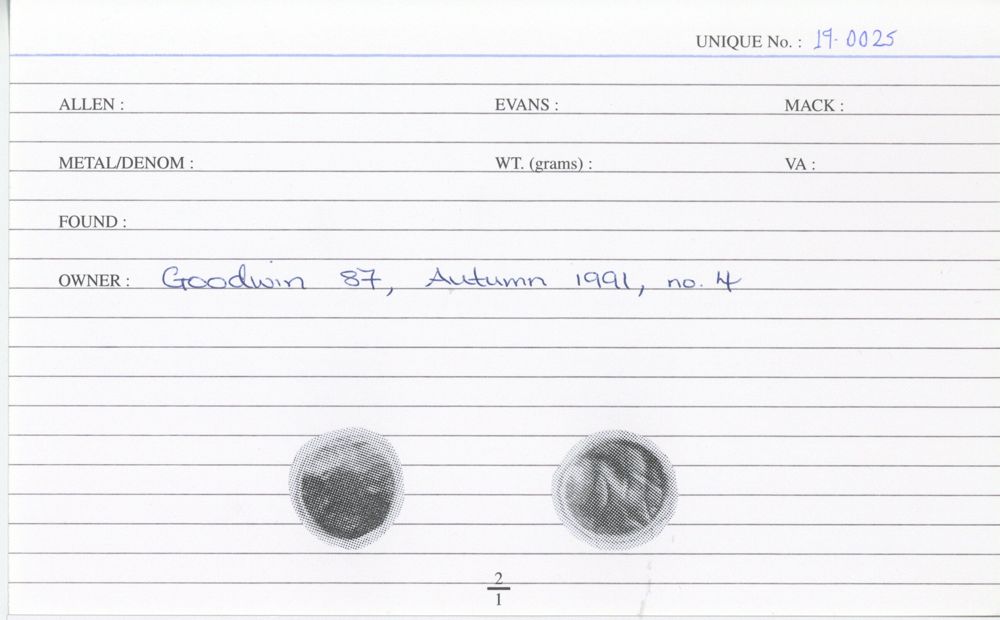 UNIQUE No. : 19.0025
ALLEN : EVANS : MACK :
METAL/DENOM : WT. (grams) : VA :
FOUND :
OWNER : Goodwin 87, Autumn 1991, no. 4
2
1